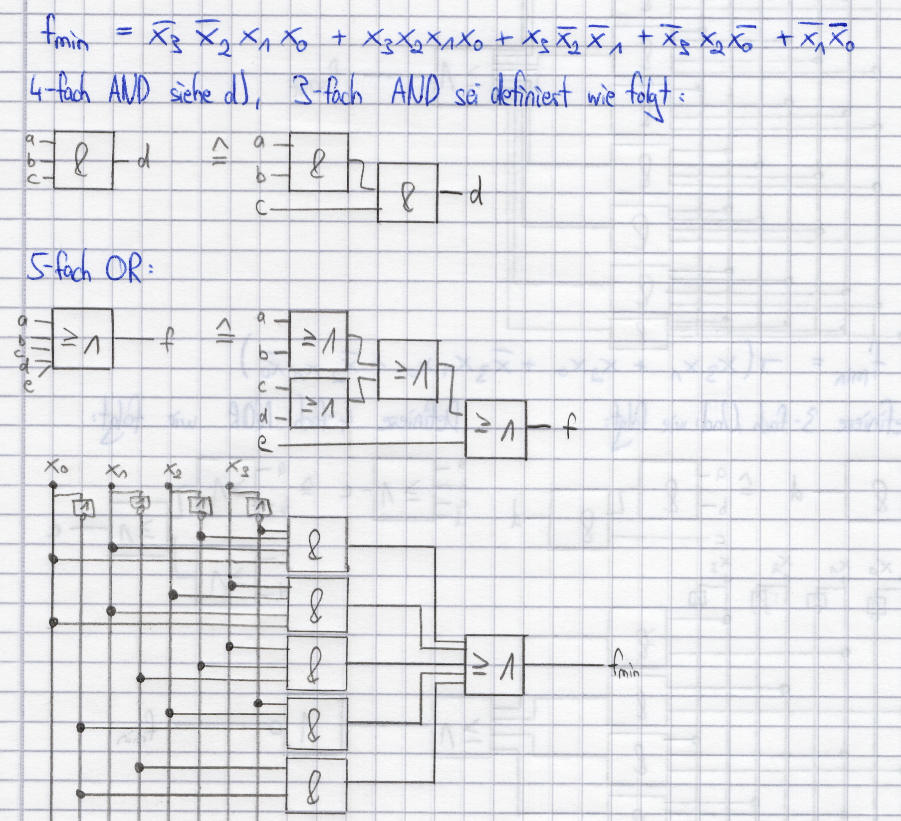 f_min = x̅₃ x̅₂ x₁ x₀ + x₃x₂x₁x₀ + x₃ x̅₂ x̅₁ + x̅₃ x₂ x̅₀ + x̅₁ x̅₀
4-fach AND siehe d), 3-fach AND sei definiert wie folgt:
a b c & d ≙ a b c & & d
5-fach OR:
a b c d e ≥1 f ≙ a b c d e ≥1 ≥1 ≥1 ≥1 f
x₀ x₁ x₂ x₃
1 1 1 1
&
&
& ≥1 f_min
&
&